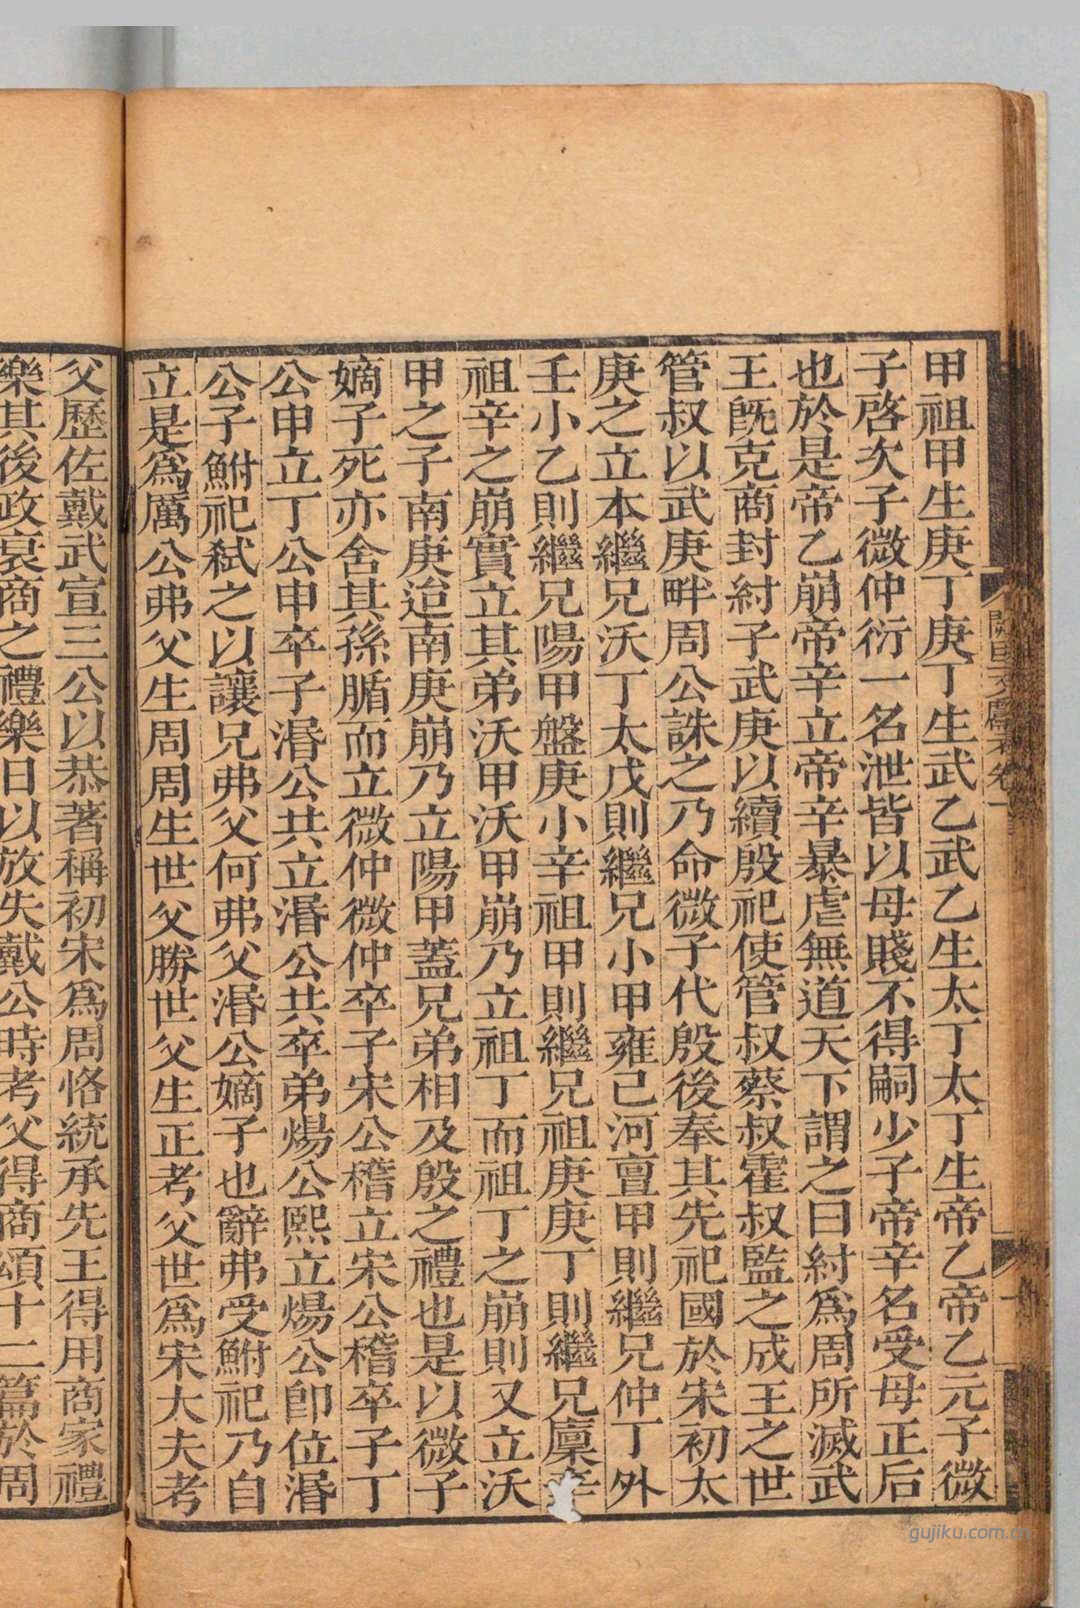 甲祖甲生庚丁庚丁生武乙武乙生太丁太丁生帝乙帝乙元子微
子啓次子微仲衍一名泄皆以母賤不得嗣少子帝辛名受母正后
也於是帝乙崩帝辛立帝辛暴虐無道天下謂之曰紂爲周所滅武
王旣克商封紂子武庚以續殷祀使管叔蔡叔霍叔監之成王之世
管叔以武庚畔周公誅之乃命微子代殷後奉其先祀國於宋初太
庚之立本繼兄沃丁太戊則繼兄小甲雍己河亶甲則繼兄仲丁外
壬小乙則繼兄陽甲盤庚小辛祖甲則繼兄祖庚庚丁則繼兄廩辛
祖辛之崩實立其弟沃甲沃甲崩乃立祖丁而祖丁之崩則又立沃
甲之子南庚迨南庚崩乃立陽甲蓋兄弟相及殷之禮也是以微子
嫡子死亦舍其孫腯而立微仲微仲卒子宋公稽立宋公稽卒子丁
公申立丁公申卒子湣公共立湣公共卒弟煬公熙立煬公卽位湣
公子鮒祀弒之以讓兄弗父何弗父湣公嫡子也辭弗受鮒祀乃自
立是爲厲公弗父生周周生世父勝世父生正考父世爲宋大夫考
父歷佐戴武宣三公以恭著稱初宋爲周恪統承先王得用商家禮
樂其後政衰商之禮樂日以放失戴公時考父得商頌十二篇於周
卷一
一
gujiku.com.cn